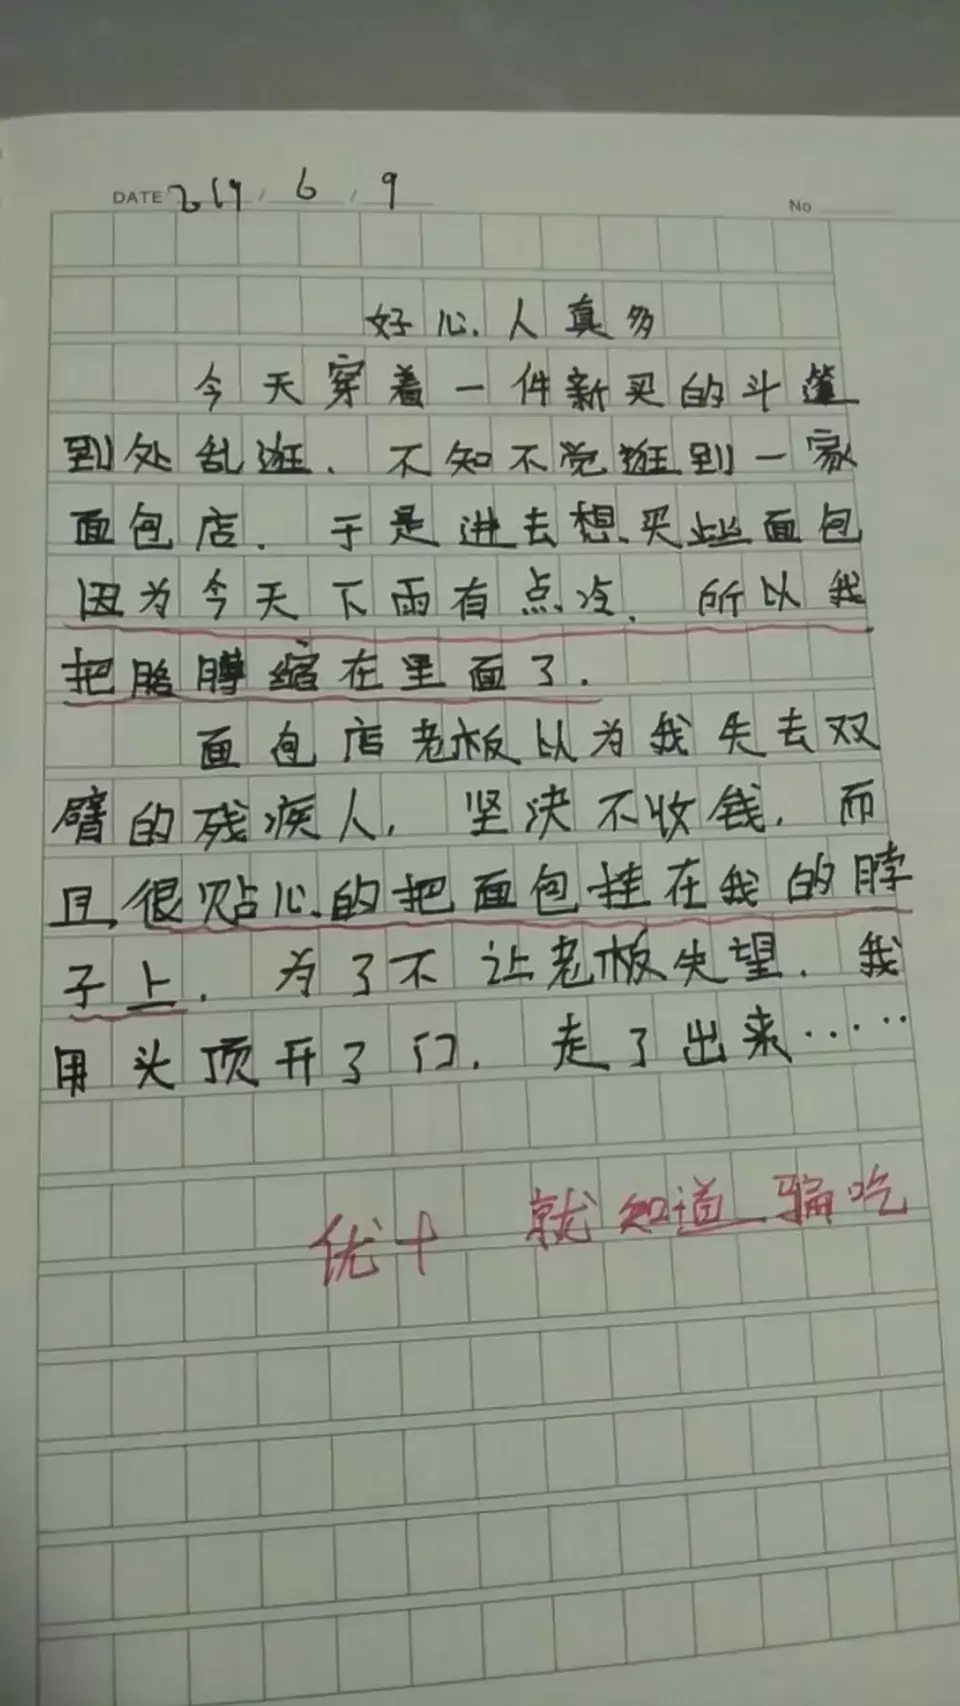 DATE 2019 / 6 / 9
No
好心人真多
今天穿着一件新买的斗篷
到处乱逛. 不知不觉逛到一家
面包店. 于是进去想买些面包
因为今天下雨有点冷. 所以我
把胳膊缩在里面了.
面包店老板以为我失去双
臂的残疾人, 坚决不收钱. 而
且很贴心的把面包挂在我的脖
子上. 为了不让老板失望. 我
用头顶开了门. 走了出来……
优十 就知道骗吃